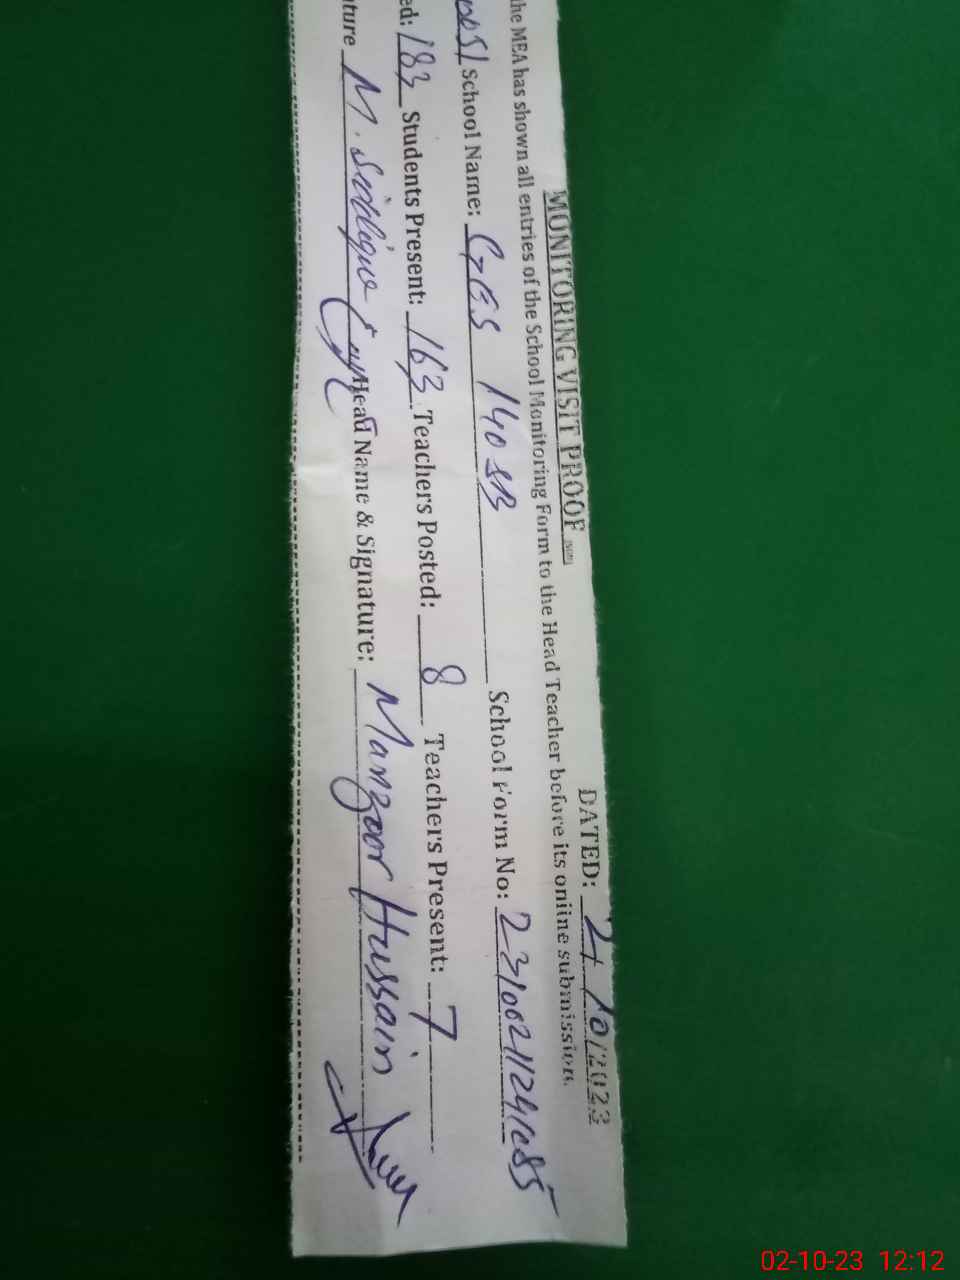 MONITORING VISIT PROOF DATED: 2/10/2023
the MEA has shown all entries of the School Monitoring Form to the Head Teacher before its online submission.
School Name: GES 140 SB School Form No:
ed: 183 Students Present: 163 Teachers Posted: 8 Teachers Present: 7
ature M. Siddique Head Name & Signature: Manzoor Hussain
02-10-23 12:12